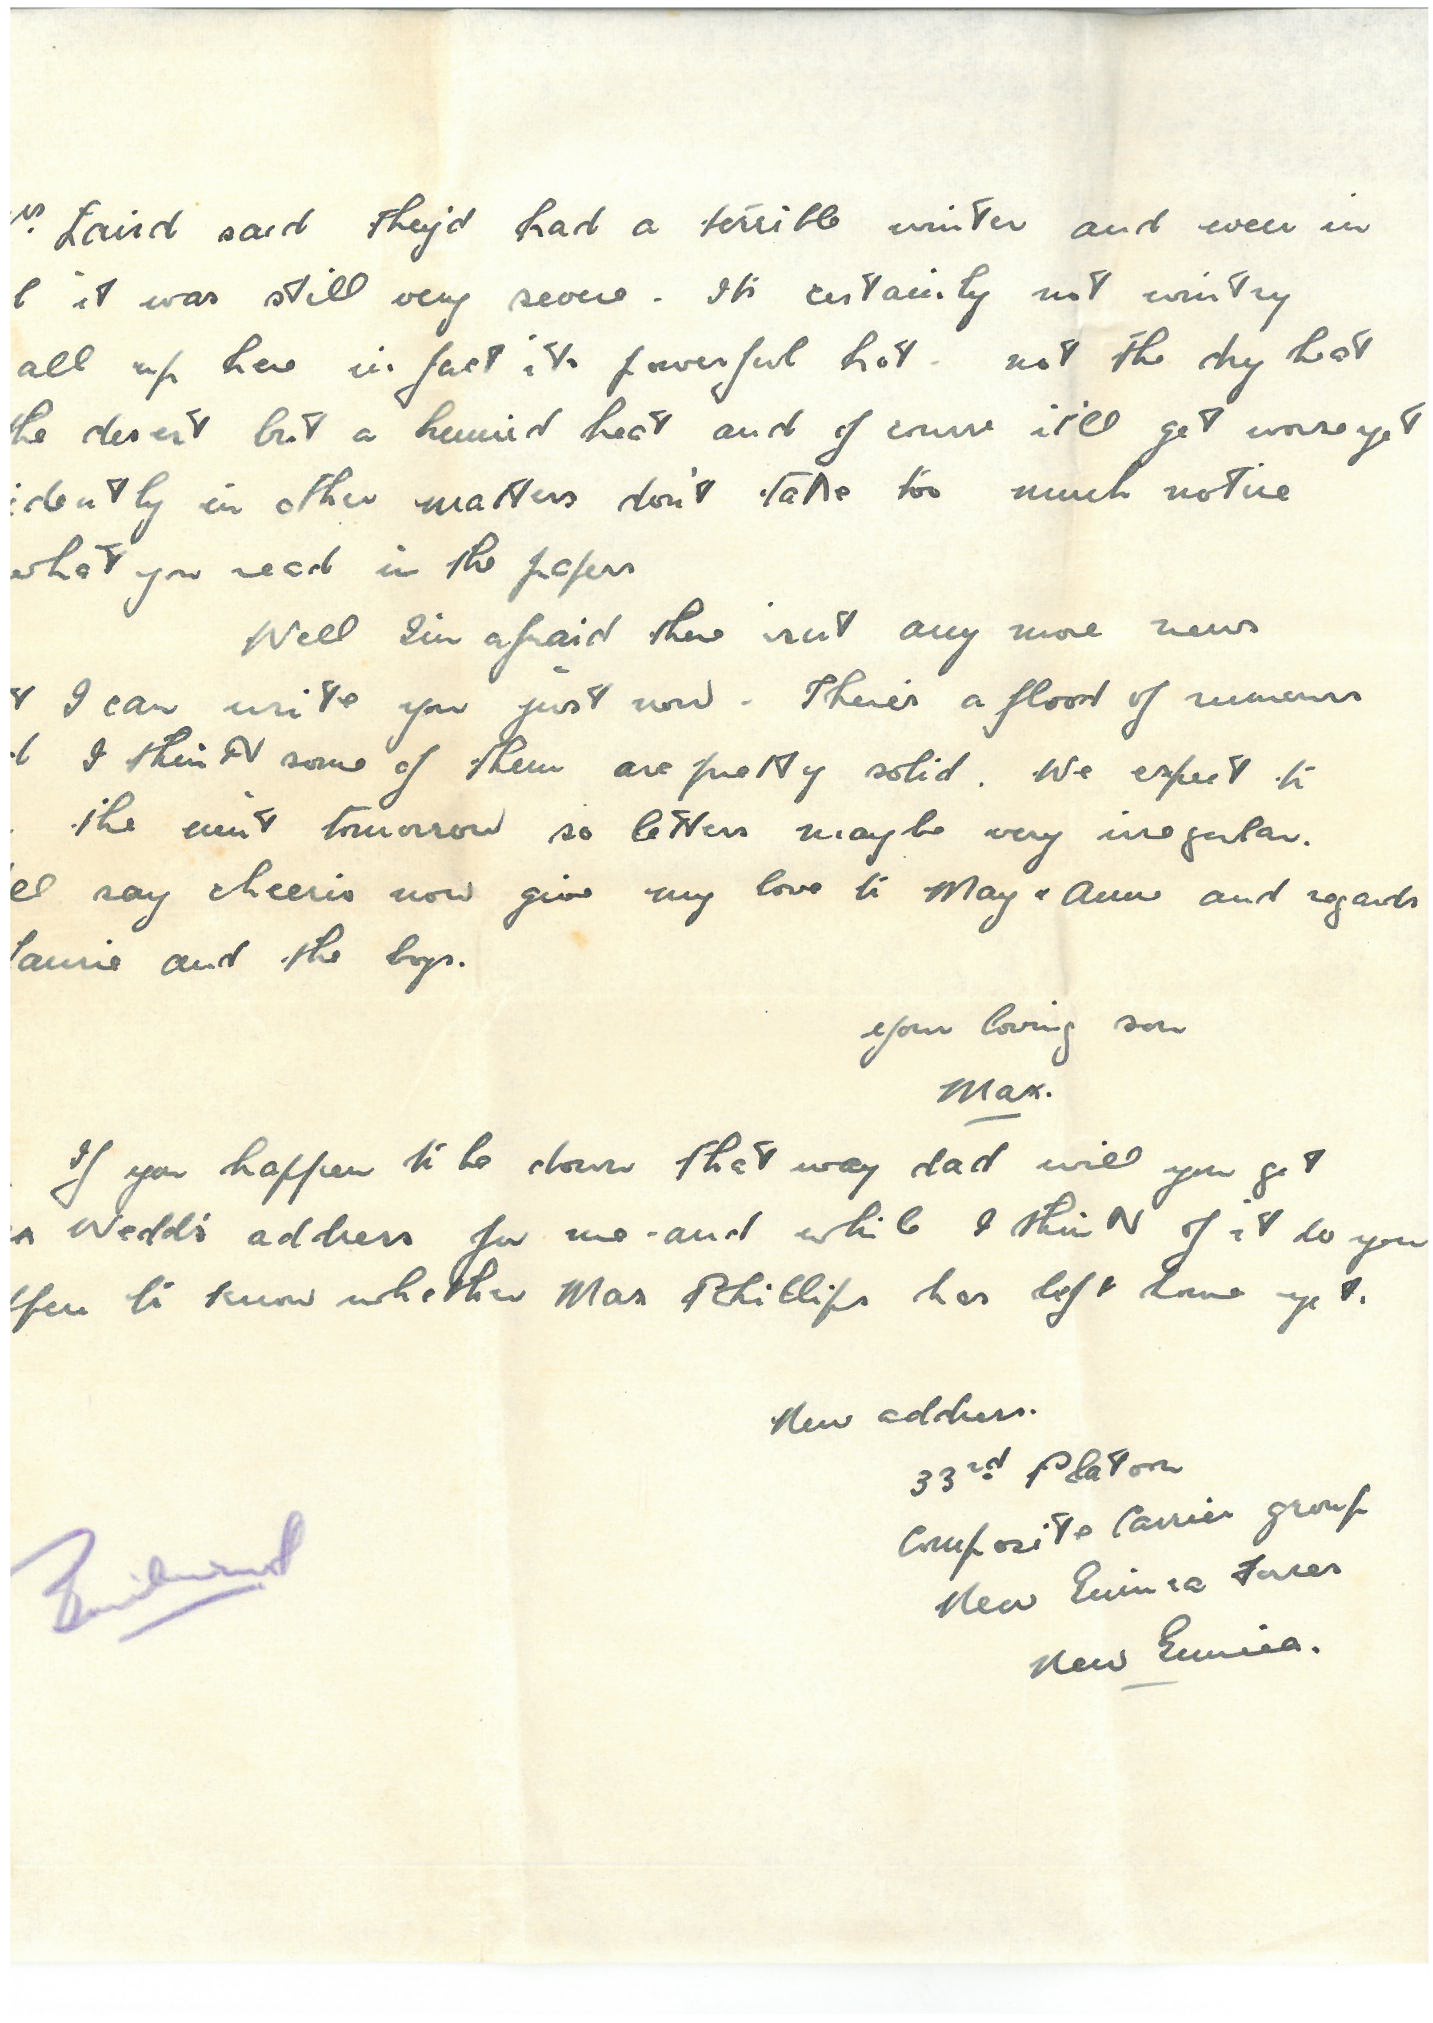 rs. Laird said they'd had a terrible winter and even in
l it was still very severe. Its certainly not wintry
all up here in fact its powerful hot - not the dry heat
the desert but a humid heat and of course it'll get worse yet
idently in other matters don't take too much notice
what you read in the papers
Well I'm afraid there isn't any more news
t I can write you just now. There's a flood of rumours
d I think some of them are pretty solid. We expect to
the unit tomorrow so letters maybe very irregular.
ll say cheerio now give my love to May & Anne and regards
Laurie and the boys.
your loving son
Max.
If you happen to be down that way dad will you get
Wedd's address for me - and while I think of it do you
ppen to know whether Max Phillips has left home yet.
New address.
33rd Platoon
Composite Carrier group
New Guinea Forces
New Guinea.